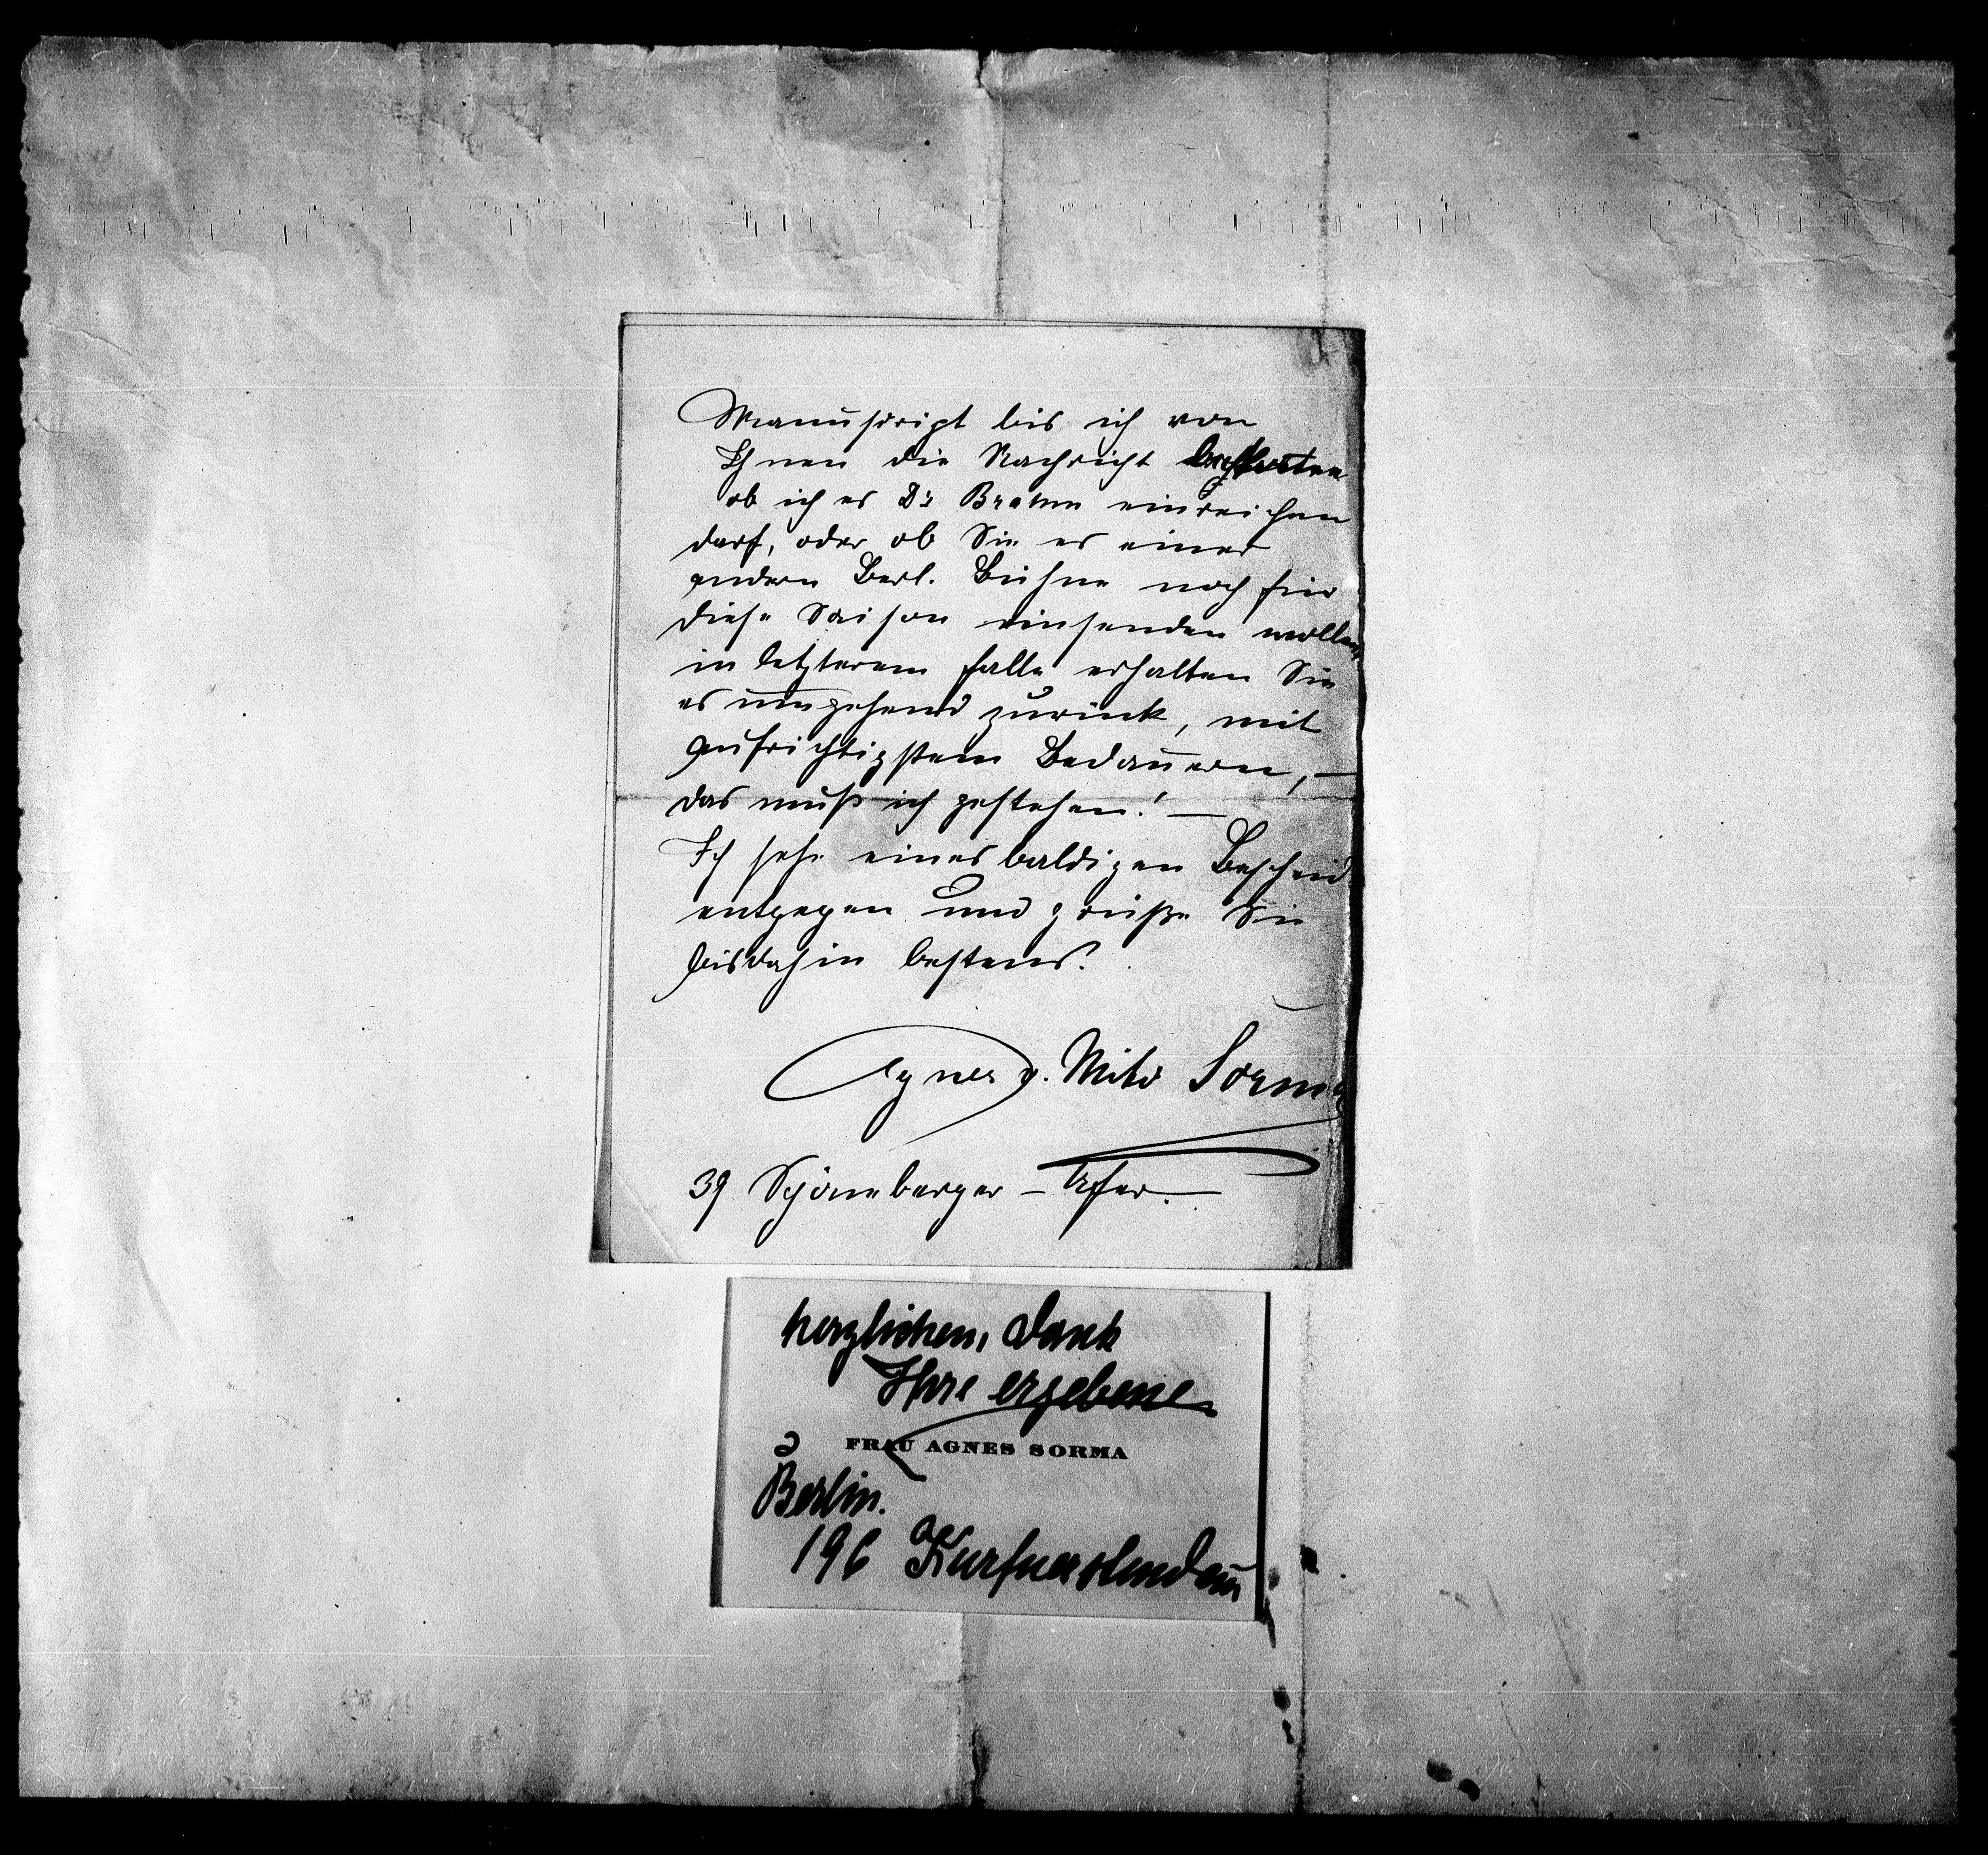 Manuskript bis ich von
Ihnen die Nachricht
ob ich es Dr Brahm einreichen
darf, oder ob Sie es einer
andern Berl. Bühne noch für
diese Saison einsenden wollen,
in letzterem Falle erhalten Sie
es umgehend zurück, mit
aufrichtigstem Bedauern, —
das muß ich gestehen! —
Ich sehe eines baldigen Bescheid
entgegen und grüße Sie
bis dahin bestens.
Agnes v. Mito Sorma
39 Schöneberger – Ufer. —
herzlichen, Dank
Ihre ergebene
FRAU AGNES SORMA
Berlin.
196 Kurfuerstendam